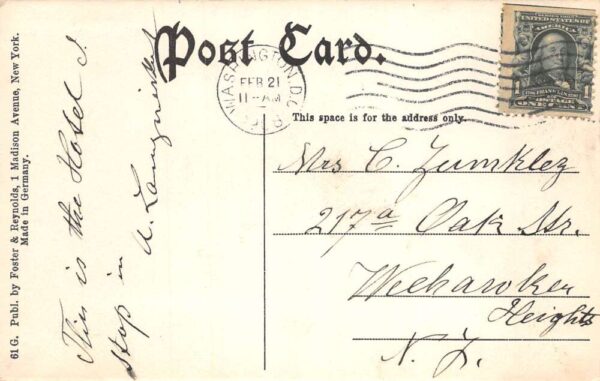 Post Card.
WASHINGTON, D.C.
FEB 21
11-AM
UNITED STATES OF
AMERICA
This space is for the address only.
Mrs C. Zumklez
217a Oak Str.
Weehawken
Heights
N. J.
This is the Hotel I
stop in
61 G. Publ. by Foster & Reynolds, 1 Madison Avenue, New York.
Made in Germany.